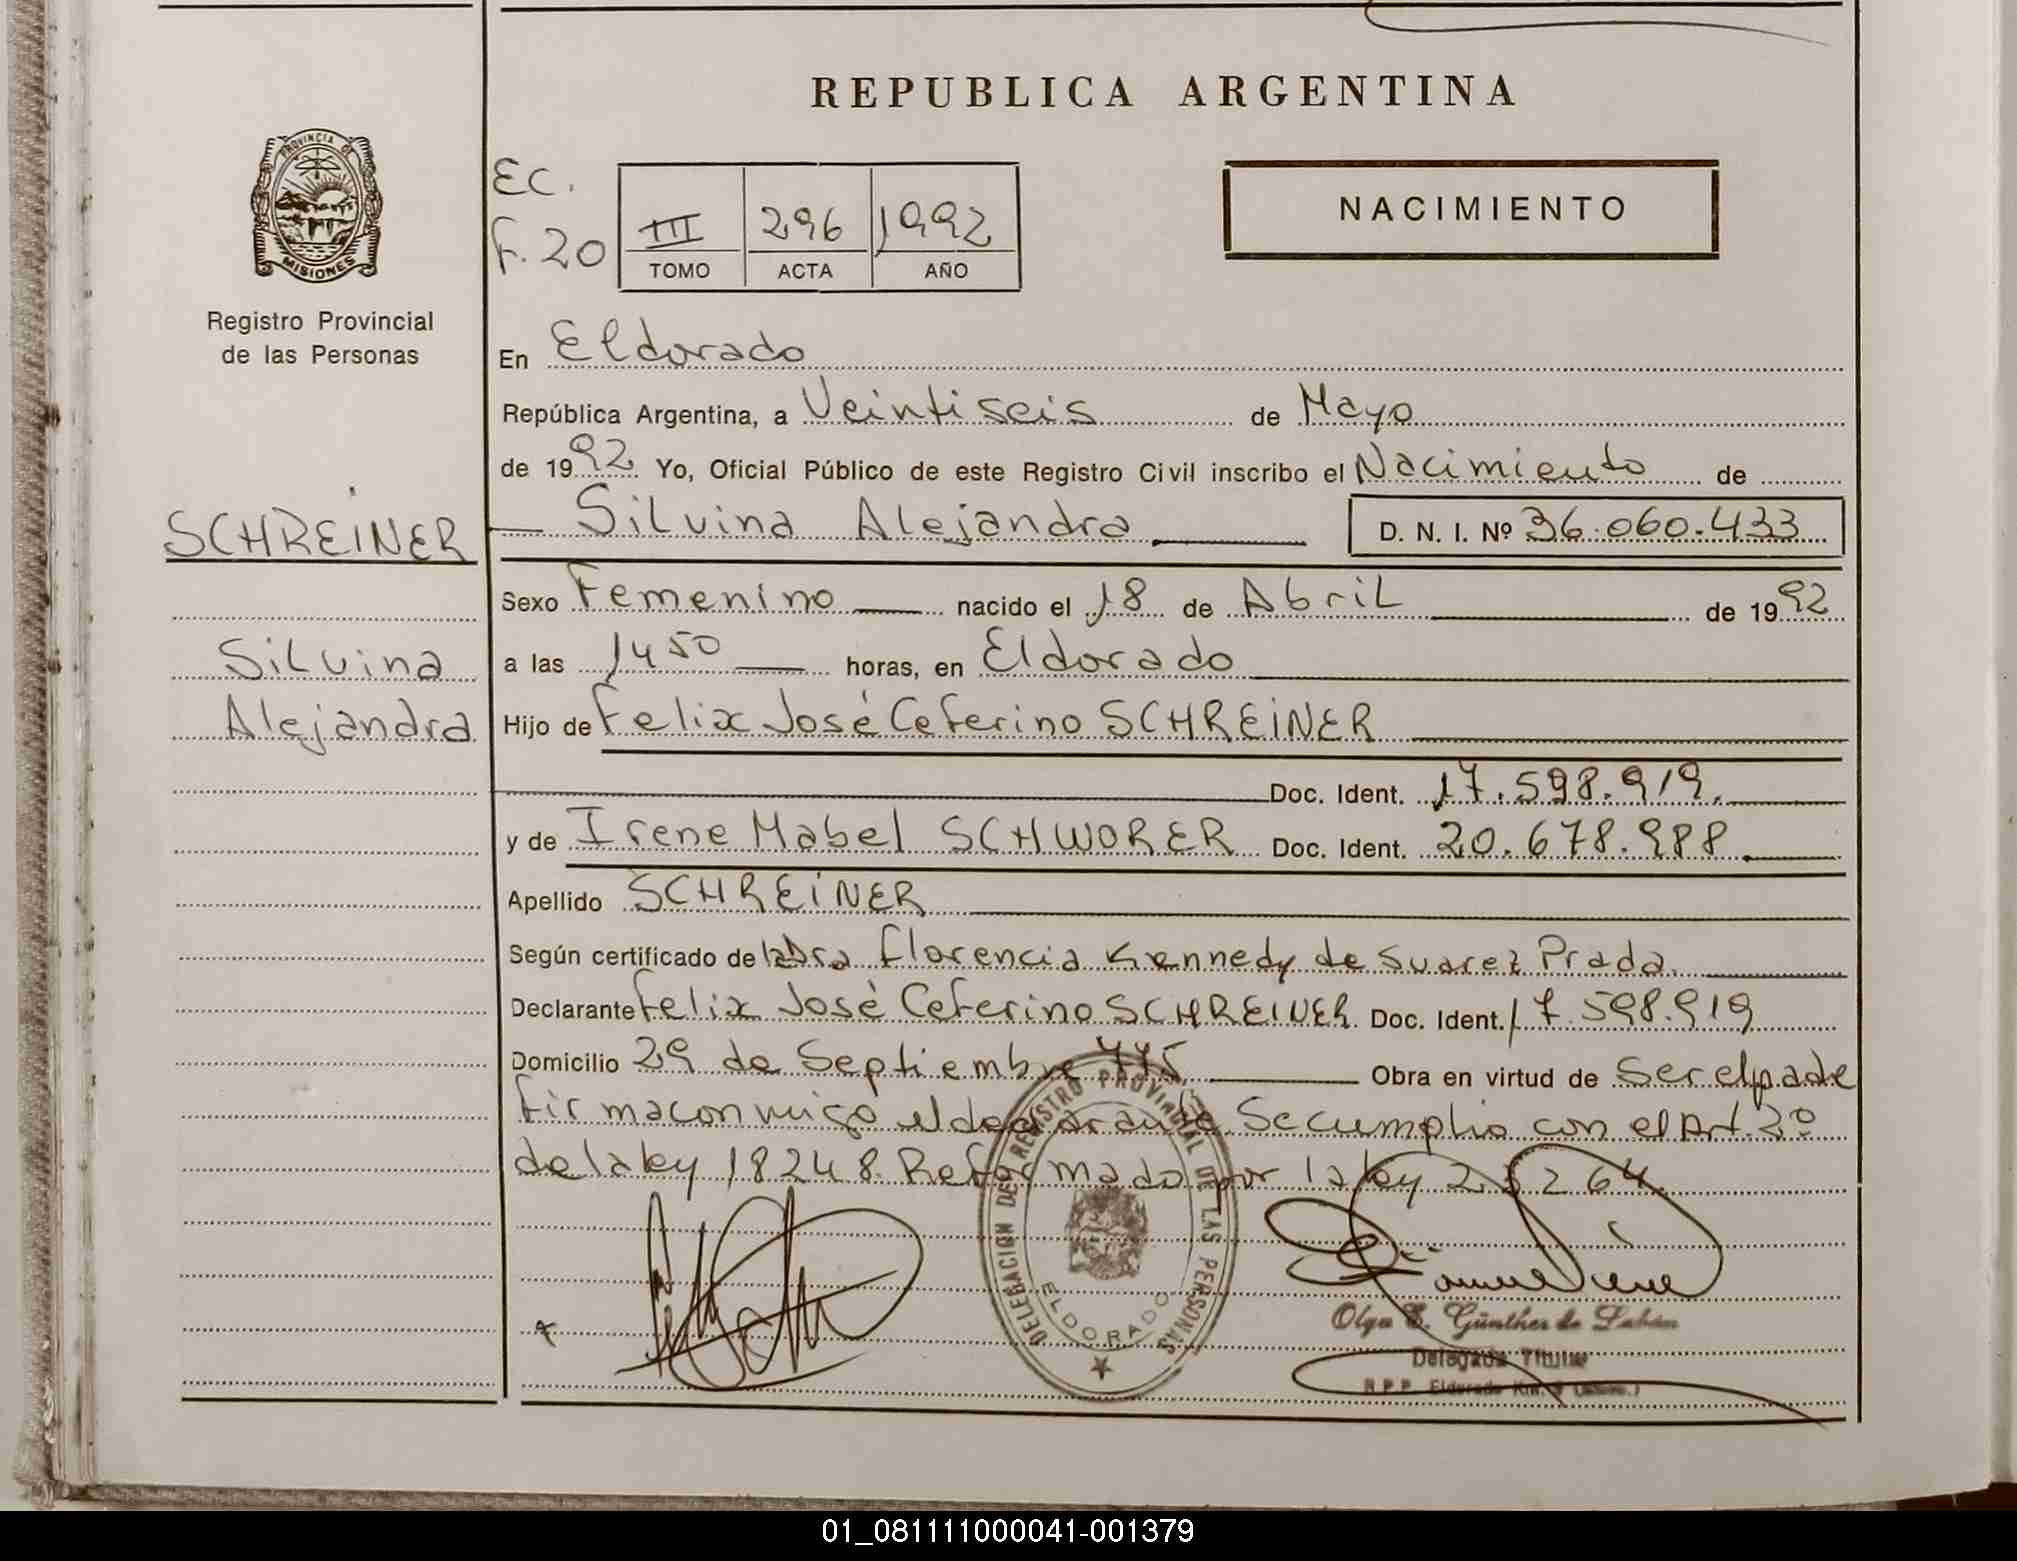 REPUBLICA ARGENTINA
PROVINCIA DE
MISIONES
Registro Provincial
de las Personas
EC.
F. 20
III 296 1992
TOMO ACTA AÑO
NACIMIENTO
En Eldorado
República Argentina, a Veintiseis de Mayo
de 1992 Yo, Oficial Público de este Registro Civil inscribo el Nacimiento de
SCHREINER
Silvina Alejandra D. N. I. Nº 36.060.433
Sexo Femenino nacido el 18 de Abril de 1992
Silvina
a las 1450 horas, en Eldorado
Alejandra
Hijo de Felix José Ceferino SCHREINER
Doc. Ident. 17.598.919.
y de Irene Mabel SCHWORER Doc. Ident. 20.678.988
Apellido SCHREINER
Según certificado de la Dra Florencia Kennedy de Suarez Prada.
Declarante Felix José Ceferino SCHREINER Doc. Ident. 17.598.919
Domicilio 29 de Septiembre 445 Obra en virtud de Ser el padre
Firma conmigo el declarante Se cumplio con el Art. 2º
de la ley 18248 Reformada por la ley 23264.
DELEGACION DEL REGISTRO PROVINCIAL DE LAS PERSONAS
ELDORADO
Olga E. Günther de
Delegada Titular
R.P.P. Eldorado Km.
01_081111000041-001379